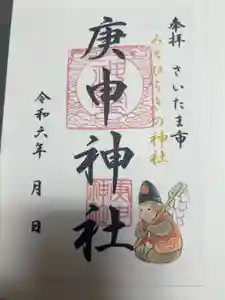 奉拝
さいたま市
みちひらきの神社
庚申神社
令和六年 月 日